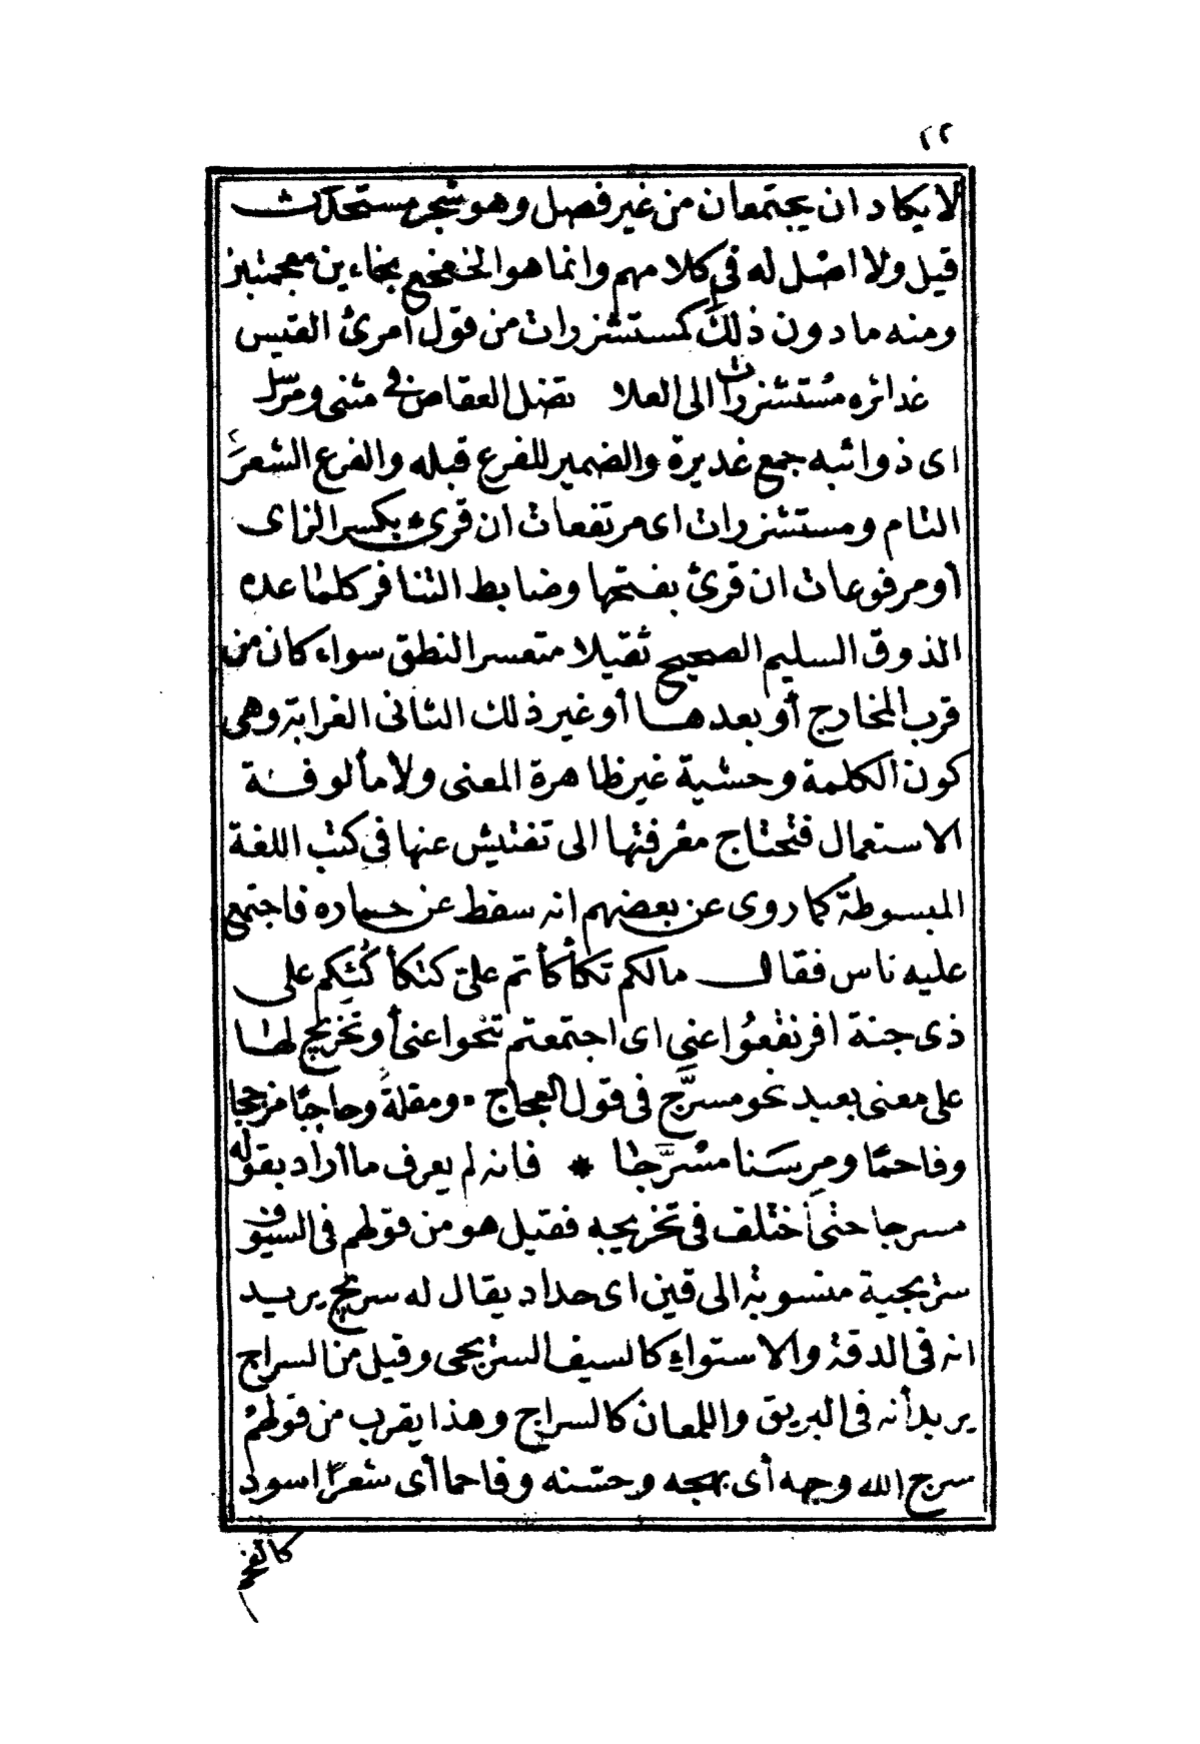 ١٢
لا يكاد ان يجتمعان من غير فصل وهو شجر مستحدث
قيل ولا اصل له في كلامهم وانما هو الخعخع بخاءين معجمتين
ومنه ما دون ذلك كمستشزرات من قول امرئ القيس
غدائره مُستشزرات الى العلا تضل العقاص في مثنى ومرسل
اى ذوائبه جمع غديرة والضمير للفرع قبله والفرع الشعر
التام ومستشزرات اى مرتفعات ان قرئ بكسر الزاى
أو مرفوعات ان قرئ بفتحها وضابط التنافر كلما عده
الذوق السليم الصحيح ثقيلا متعسر النطق سواء كان من
قرب المخارج أو بعدها أو غير ذلك الثانى الغرابة وهى
كون الكلمة وحشية غير ظاهرة المعنى ولا مألوفة
الاستعمال فتحتاج معرفتها الى تفتيش عنها فى كتب اللغة
المبسوطة كما روى عن بعضهم انه سقط عن حماره فاجتمع
عليه ناس فقال مالكم تكأكأتم علىّ كتكأكئكم على
ذى جنة افرنقعُوا عنى اى اجتمعتم تنحوا عنى أو تخريج لها
على معنى بعيد نحو مسرَّج فى قول العجاج ۰ ومقلةً وحاجبًا مزججا
وفاحمًا ومرسَنا مسُرَّجا * فانه لم يعرف ما أراد بقوله
مسرجا حتى أختلف فى تخريجه فقيل هو من قولهم فى السيوف
سريجية منسوبة الى قين اى حداد يقال له سريج يريد
انه فى الدقة والاستواء كالسيف السريجى وقيل من السراج
يريد أنه فى البريق واللمعان كالسراج وهذا يقرب من قولهم
سرج الله وجهه أى بهجه وحسنه وفاحما أى شعرًا اسود
كالفحم